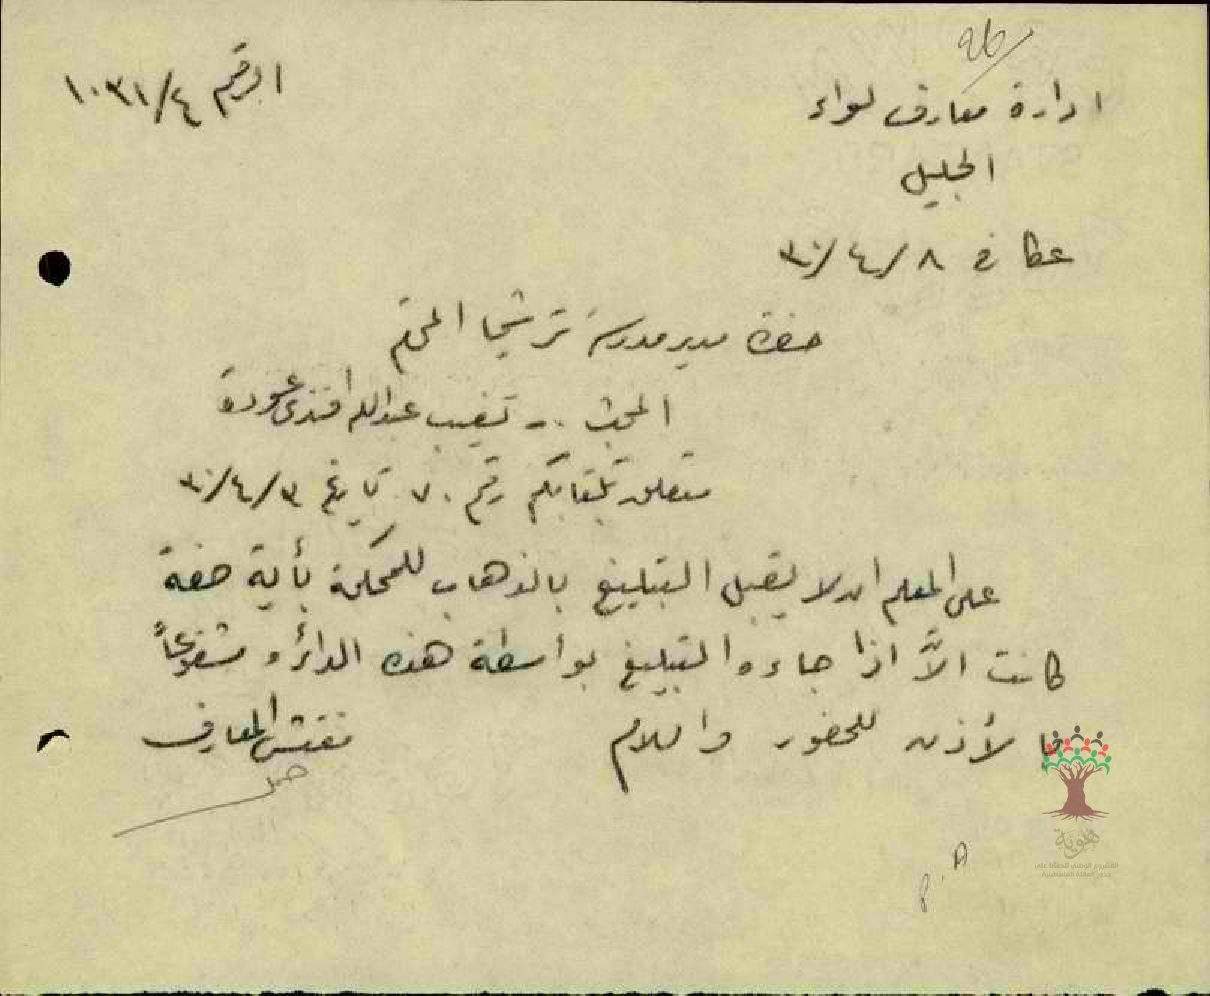 ٩٦
ادارة معارف لواء
الرقم ١٠٣١/٤
الجليل
عكا في ٨/٤/٣٠
حضرة مدير مدرسة ترشيحا المحترم
المبحث :- تغيب عبدالله افندي عودة
متعلق بكتابكم رقم ٧٠ تاريخ ٣/٤/٣٠
على المعلم ان لا يقبل التبليغ بالذهاب للمحكمة بأية صفة
كانت الاَّ اذا جاءه التبليغ بواسطة هذه الدائرة مشفوعاً
بالأذن للحضور والسلام
مفتش المعارف
هوية
P. A